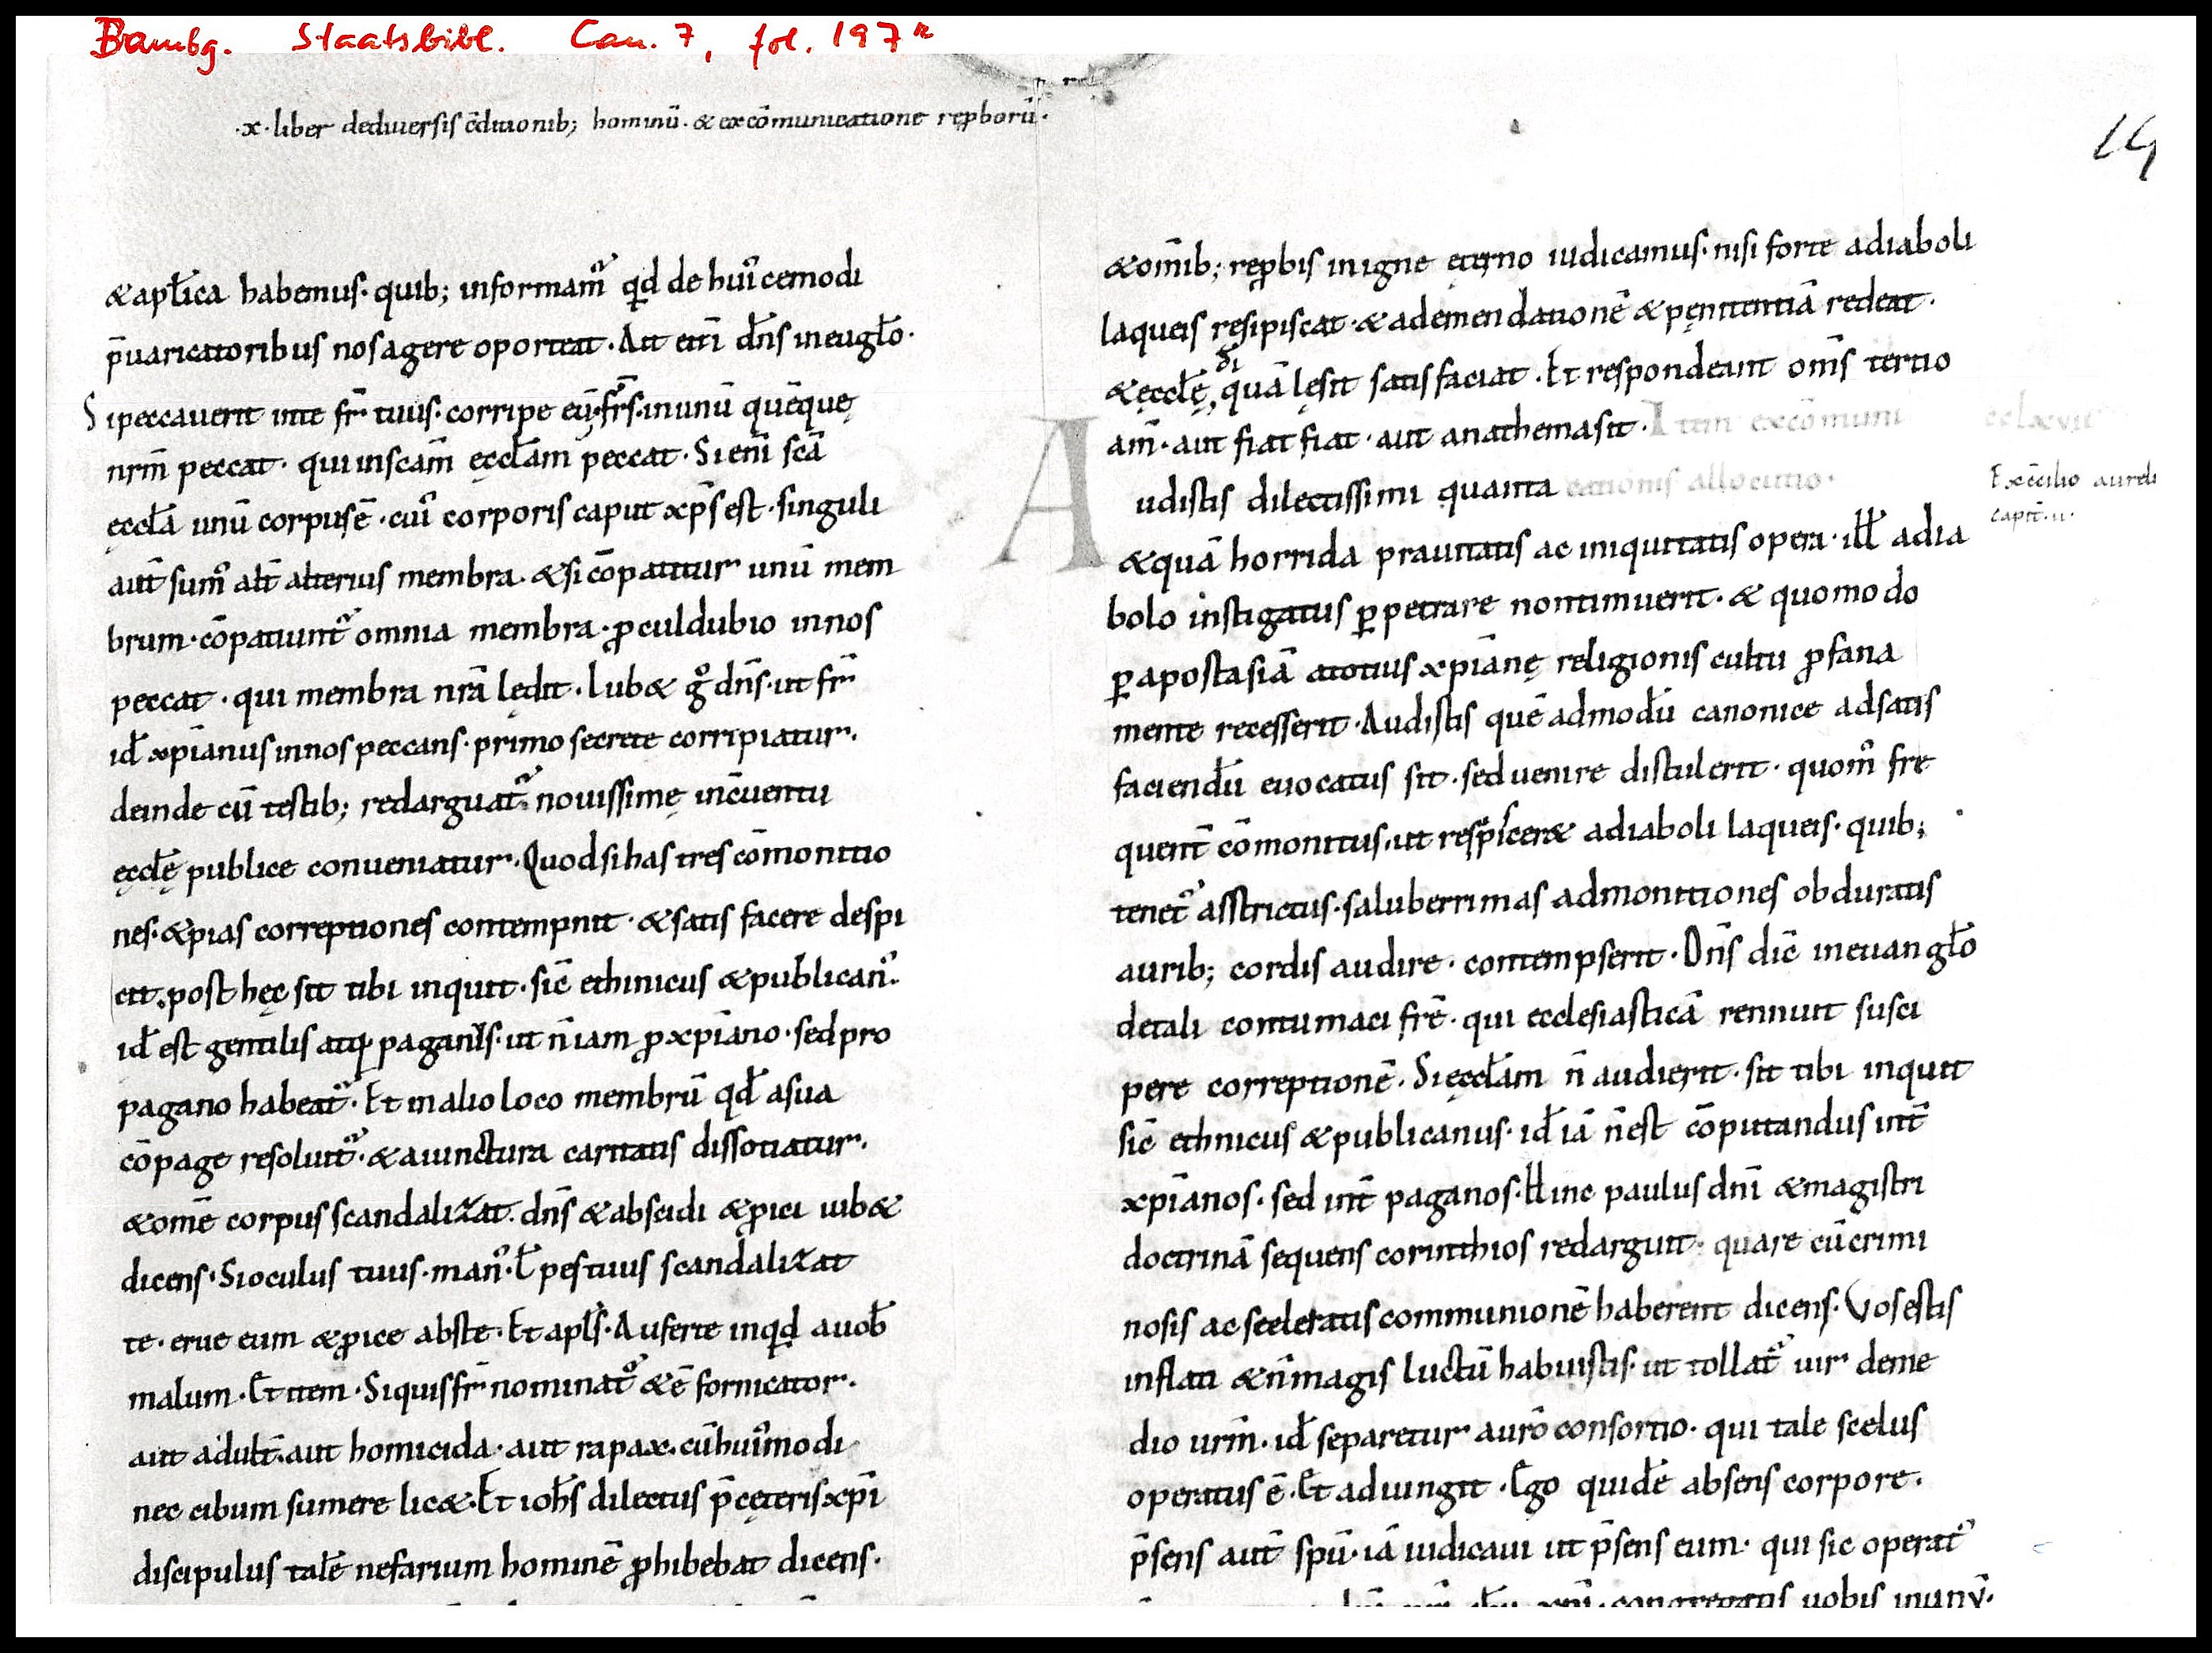 Bambg. Staatsbibl. Can. 7, fol. 197r
·x· liber dediuersis c̄ditionib; hominū· & excōmunicatione rep̱borū·
19
&apl̄ica habemus· quib; informam᷒ qd de hui᷒cemodi
p̄uaricatoribus nosagere oporteat· Ait eni̅ dn̄s ineugl̄o·
Sipeccauerit inte fr̄ tuus· corripe eū· fr̄s· inunū quēquę
nrm̄ peccat· qui inscam̄ ęccl̄am peccat· Sieni̅ scā
ęccl̄a unū corpusē· cui᷒ corporis caput xp̄s est· singuli
aut̄ sum᷒ alt̄ alterius membra· &si cōpatitur unū mem
brum· cōpatiunt᷒ omnia membra· ꝓculdubio innos
peccat· qui membra nrā lędit· Iub& g̊ dn̄s· ut fr̄
id̄ xp̄ianus innos peccans· primo secrete corripiatur·
deinde cū testib; redarguat᷒· nouissimę inc̄uentu
ęccl̄ę publice conueniatur· Quodsi has tres cōmonitio
nes· &pias correptiones contempnit· &satis facere despi
cit· post hęc sit tibi inquit· sic̄ ethinicus &publican᷒·
id̄ est gentilis atq; paganus· ut n̄ iam ꝓ xp̄iano· sed pro
pagano habeat᷒· Et inalio loco membrū qd̄ asua
cōpage resoluit᷒· &aiunctura caritatis dissotiatur·
&omē corpus scandalizat· dn̄s &abscidi &ꝓici iub&
dicens· Sioculus tuus· man᷒· l̄ pestuus scandalizat
te· erue eum &ꝓice abste· Et apl̄s· Auferte inqd auob̄
malum· Et item· Siquis fr̄ nominat᷒ &ē fornicator·
aut adult̄· aut homicida· aut rapax· cū hui᷒modi
nec cibum sumere lic&· Et ioh̄s dilectus p̄cęteris xp̄i
discipulus talē nefarium hominē ꝓhibebat dicens·
&om̄ib; rep̱bis inigne ęterno iudicamus· nisi forte adiaboli
laqueis ręsipiscat· &ademendationē &pęnitentiā redeat·
&ęccl̄ę di̅, quā lęsit satisfaciat· Et respondeant om̄s tertio
am̄· aut fiat fiat· aut anathemasit· Item excōmuni
cclxvii
Audistis dilectissimi quanta cationis allocutio·
Exc̄cilio aureli
capit̄· ii·
&quā horrida prauitatis ac iniquitatis opera· ill̄ adia
bolo instigatus ꝑpetrare nontimuerit· & quomodo
ꝑ apostasiā atotius xp̄ianę religionis cultu ꝓfana
mente recesserit· Audistis quē admodū canonice adsatis
faciendū euocatus sit· sed uenire distulerit· quom̊ fre
quent̄ cōmonitus· ut respicer& adiaboli laqueis· quib;
tenet᷒ asstrictus· saluberrimas admonitiones obduratis
aurib; cordis audire· contempserit· Dn̄s dic̄ ineuangl̄o
detali contumaci frē· qui ecclesiasticā rennuit susci
pere correptionē· Si ęccl̄am n̄ audierit· sit tibi inquit
sic̄ ethnicus &publicanus· id̄ iā n̄est cōputandus int̄
xp̄ianos· sed int̄ paganos· Hinc paulus dn̄i &magistri
doctrinā sequens corinthios redarguit· quare cūcrimi
nosis ac sceleratis communionē haberent dicens· Vos estis
inflati &n̄magis luctū habuistis· ut tollat᷒ uir deme
dio urm̄· id̄ separetur aurō consortio· qui tale scelus
operatus ē· Et adiungit· Ego quidē absens corpore·
p̄sens aut̄ spū· iā iudicaui ut p̄sens eum· qui sic operat᷒
congregatis uobis inunū·